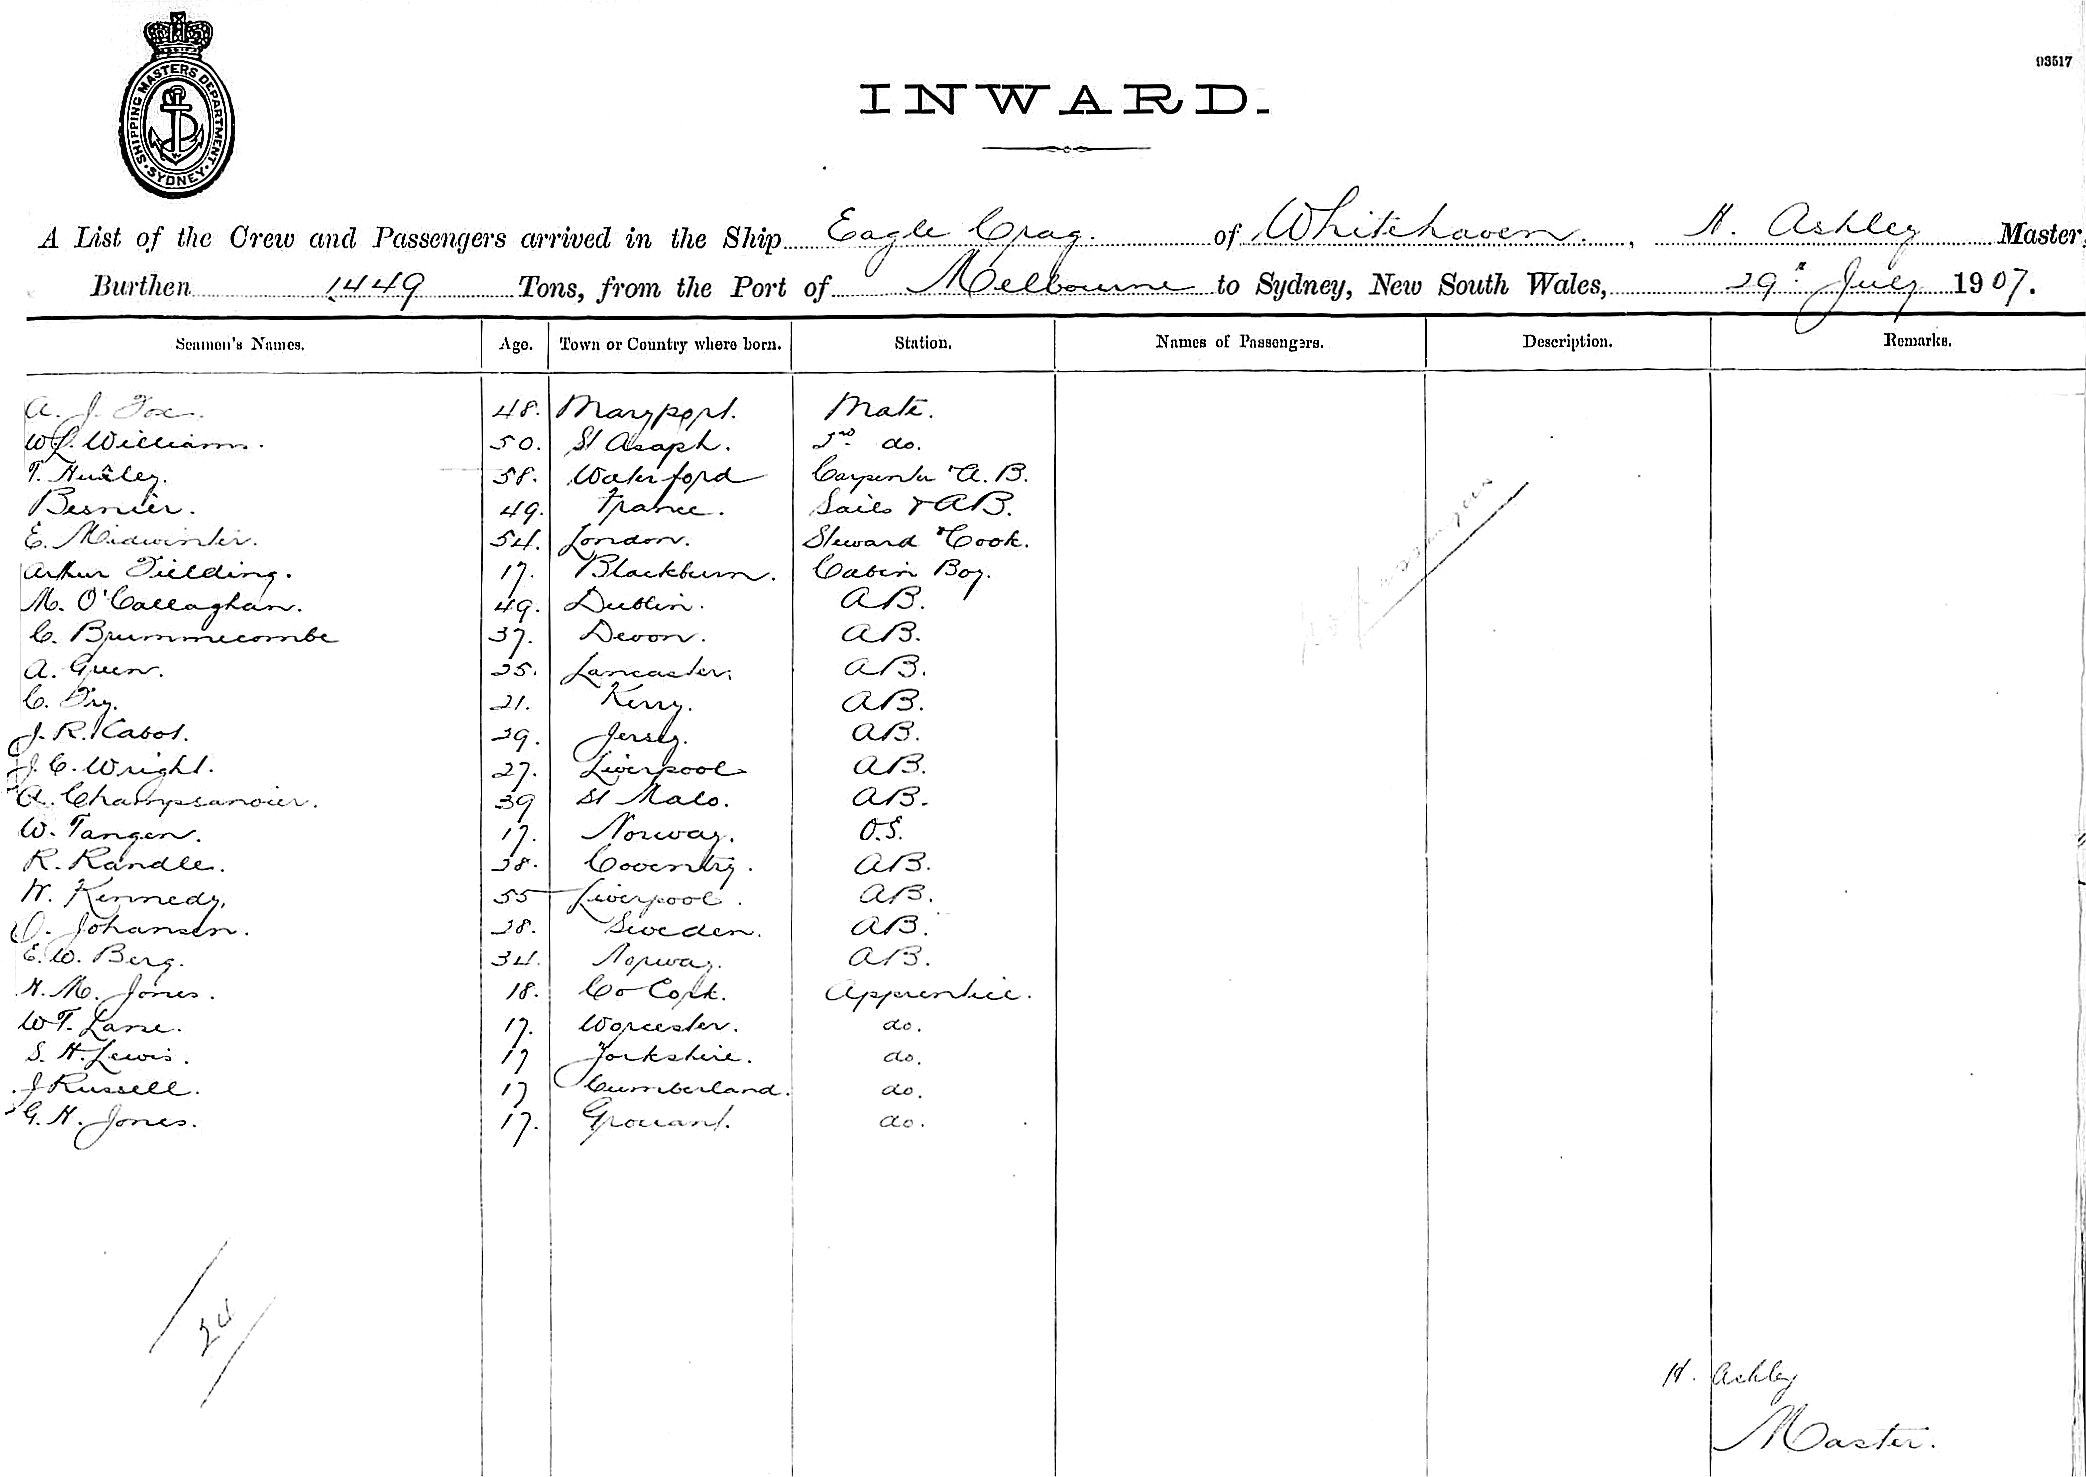 SHIPPING MASTERS DEPARTMENT
SYDNEY
03517
INWARD.
A List of the Crew and Passengers arrived in the Ship Eagle Crag. of Whitehaven. , H. Ashley Master,
Burthen 1449 Tons, from the Port of Melbourne to Sydney, New South Wales, 29th July 1907.
Seamen's Names. Age. Town or Country where born. Station. Names of Passengers. Description. Remarks.
A. J. Fox. 48. Maryport. Mate.
W. L. Williams. 50. St Asaph. 2nd do.
T. Hurley. 58. Waterford Carpenter & A.B.
Besnier. 49. France. Sails & AB.
E. Midwinter. 54. London. Steward & Cook.
Arthur Fielding. 17. Blackburn. Cabin Boy.
M. O'Callaghan. 49. Dublin. AB.
C. Brummecombe 37. Devon. AB.
A. Green. 25. Lancaster. AB.
C. Fry. 21. Kerry. AB.
J. R. Cabot. 29. Jersey. AB.
J. C. Wright. 27. Liverpool AB.
A. Champsanoier. 39 St Malo. AB.
W. Tangen. 17. Norway. O.S.
R. Randle. 28. Coventry. AB.
W. Kennedy. 55 Liverpool. AB.
O. Johansen. 28. Sweden. AB.
E. W. Berg. 34. Norway. AB.
H. M. Jones. 18. Co Cork. Apprentice.
W T. Lane. 17. Worcester. do.
S. H. Lewis. 17 Yorkshire. do.
J Russell. 17 Cumberland. do.
G. H. Jones. 17. Gronant. do.
No passengers
24
H. Ashley
Master.